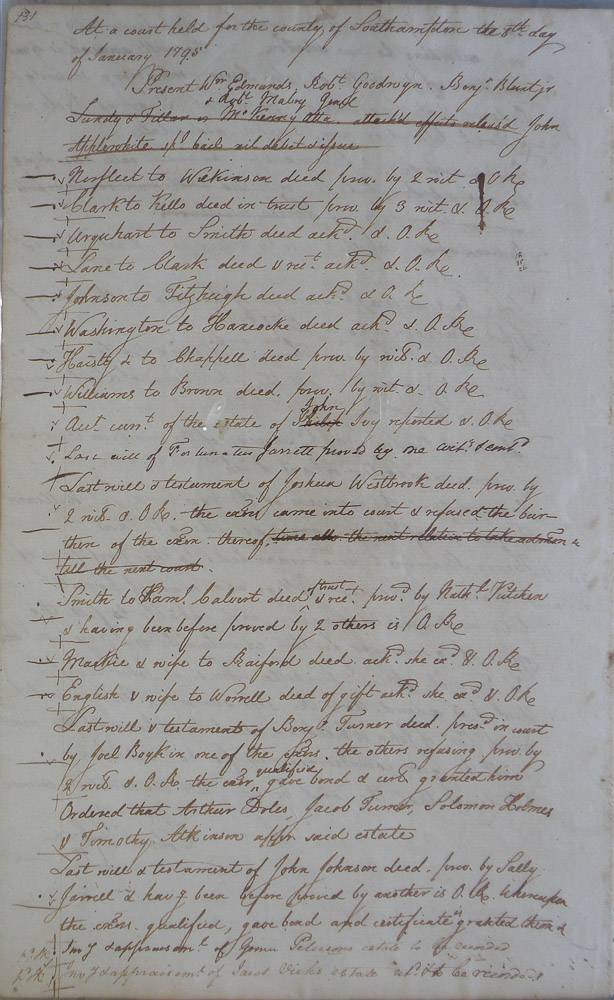 131
At a court held for the county of Southampton the 8th day
of January 1795
Present Wm Edmunds, Robt. Goodwyn. Benjn. Blunt jr
& Robt. Mabry Gent
Lundy & Tillar vs attach'd effects releas'd John
Applewhite spl. bail nil debit & issue
Norfleet to Wilkinson deed prov. by 2 wit & O Re
Clark to Kello deed in trust prov. by 3 wit. &. O Re
Urquhart to Smith deed ackd. &. O. Re
Lane to Clark deed & rect. ackd. &. O. Re.
Johnson to Fitzhugh deed ackd. & O. Re
Washington to Hancocke deed ackd. &. O. Re
Hasty & to Chappell deed prov. by wits. & O. Re
Williams to Brown deed. prov. by wit. &. O Re
John
Acct. curt. of the estate of Philip Ivy reported &. O Re
Last will of Fortunatus Jarrett proved by one wits. & contd.
Last will & testament of Joshua Westbrook deed. prov. by
2 wits. &. O Re. the came into court & refused the bur-
then of the exon. thereof, time the next relation to take admon &
till the next court.
of trust
Smith to Saml. Calvert deed & rect. provd. by Nathl. Kitchen
& having been before proved by 2 others is O Re
Mackie & wife to Raiford deed ackd. she exd. &. O. Re
English & wife to Worrell deed of gift ackd. she exd. & O. Re
Last will & testament of Benjn. Turner deed. presd. in court
by Joel Boykin one of the exors. the others refusing prov. by
qualified
2 wits. &. O. Re. the exor. gave bond & cert. granted him
Ordered that Arthur Doles, Jacob Turner, Solomon Holmes
& Timothy Atkinson appr. said estate
Last will & testament of John Johnson deed. prov. by Sally
Jarrell & havg. been before proved by another is O. Re. whereupon
the exors. qualified, gave bond and certificate is granted them &
Invy & appraisemt. of Petersons estate to be recorded
Invy & appraisemt. of Jacob Vicks estate to be recorded